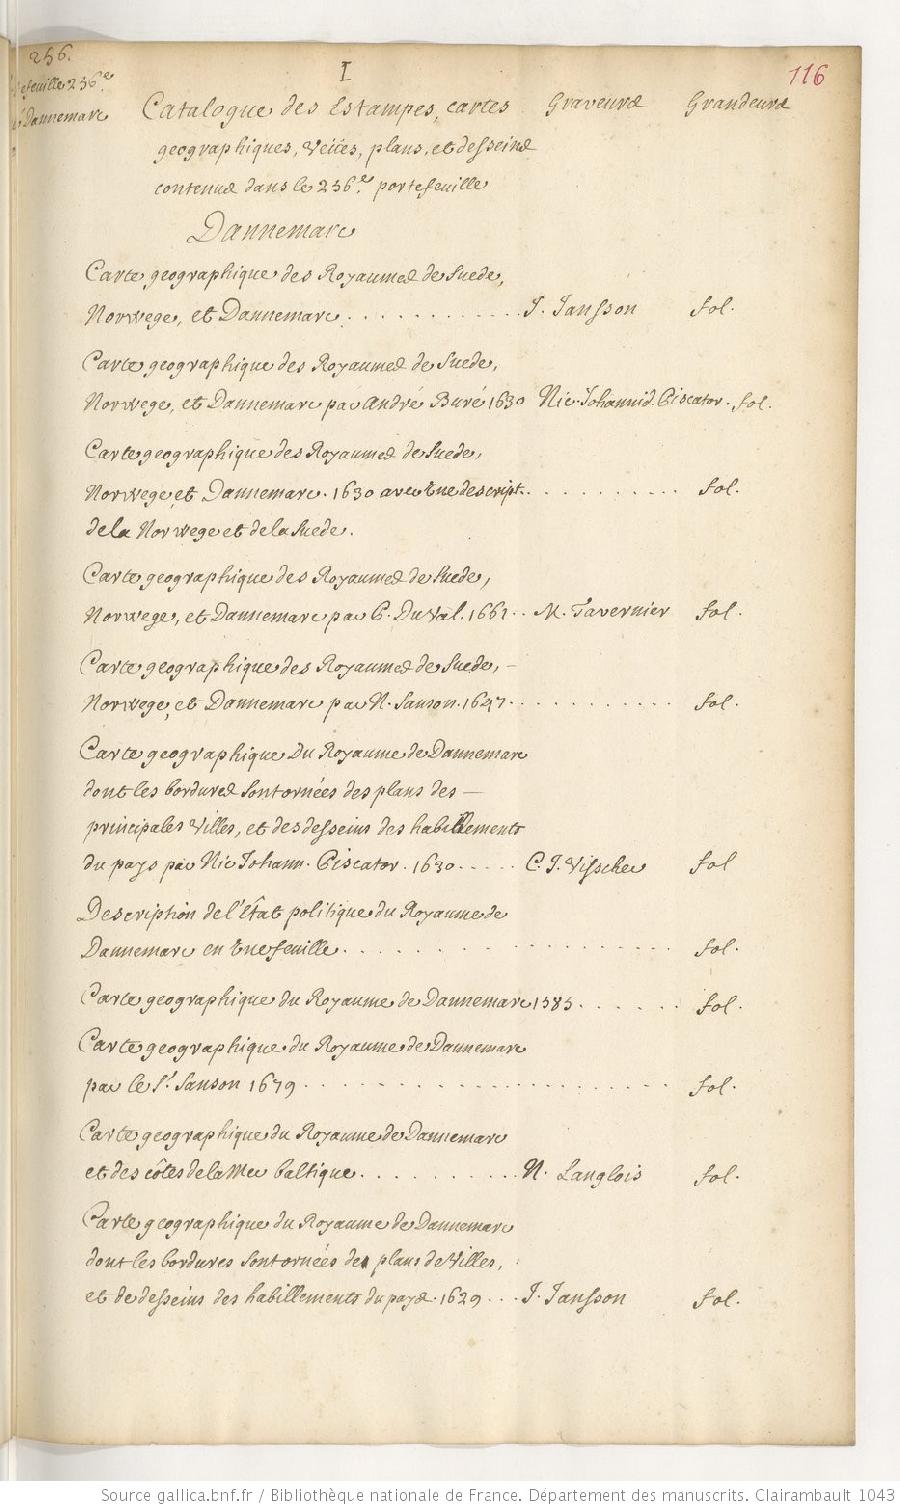 256.
I
116
tefeuille 256.e
Dannemarc
Catalogue des Estampes, cartes Graveurs Grandeurs
geographiques, Veües, plans, et desseins
contenus dans le 256.e portefeuille
Dannemarc
Carte geographique des Royaumes de Suede,
Norwege, et Dannemarc. . . . . . . . . . . . J. Jansson fol.
Carte geographique des Royaumes de Suede,
Norwege, et Dannemarc par André Buré 1630 Nic. Johannis Piscator. fol.
Carte geographique des Royaumes de Suede,
Norwege et Dannemarc. 1630 avec Une descript. . . . . . . . . . . fol.
de la Norwege et de la Suede.
Carte geographique des Royaumes de Suede,
Norwege, et Dannemarc par P. Du Val. 1661. . M. Tavernier fol.
Carte geographique des Royaumes de Suede, —
Norwege, et Dannemarc par N. Sanson. 1647. . . . . . . . . . . . fol.
Carte geographique Du Royaume de Dannemarc
dont les bordures sont ornées des plans des —
principales Villes, et des desseins des habillements
du pays par Nic Johann. Piscator. 1630. . . . . C. J. Visscher fol
Description de l'Etat politique du Royaume de
Dannemarc en Une feuille. . . . . . . . . . . . . . . . . . fol.
Carte geographique du Royaume de Dannemarc 1585. . . . . . . fol.
Carte geographique du Royaume de Dannemarc
par le Sr. Sanson 1679 . . . . . . . . . . . . . . . . . . . . fol.
Carte geographique du Royaume de Dannemarc
et des côtes de la Mer baltique. . . . . . . . . . N. Langlois fol.
Carte geographique du Royaume de Dannemarc
dont les bordures sont ornées de plans de Villes,
et de desseins des habillements du pays. 1629 . . . J. Jansson fol.
Source gallica.bnf.fr / Bibliothèque nationale de France. Département des manuscrits. Clairambault 1043